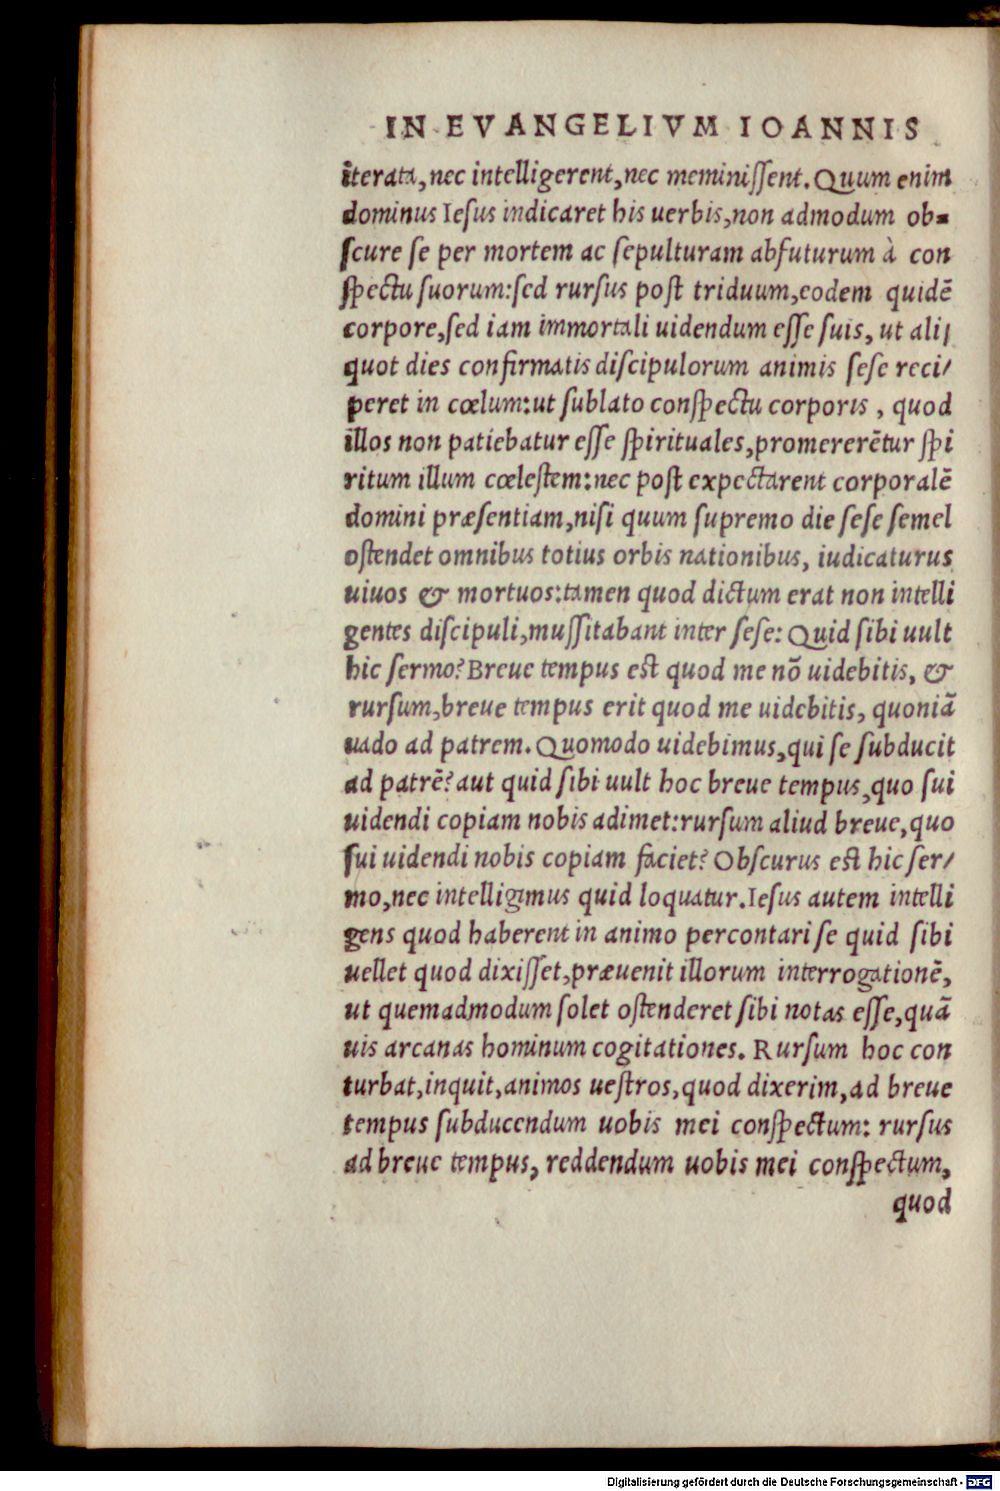 IN EVANGELIVM IOANNIS
iterata, nec intelligerent, nec meminiſſent. Quum enim
dominus Ieſus indicaret his uerbis, non admodum ob=
ſcure ſe per mortem ac ſepulturam abfuturum à con
ſpectu ſuorum: ſed rurſus poſt triduum, eodem quidē
corpore, ſed iam immortali uidendum eſſe ſuis, ut ali/
quot dies confirmatis diſcipulorum animis ſeſe reci/
peret in cœlum: ut ſublato conſpectu corporis, quod
illos non patiebatur eſſe ſpirituales, promererētur ſpi
ritum illum cœleſtem: nec poſt expectarent corporalē
domini præſentiam, niſi quum ſupremo die ſeſe ſemel
oſtendet omnibus totius orbis nationibus, iudicaturus
uiuos & mortuos: tamen quod dictum erat non intelli
gentes diſcipuli, muſſitabant inter ſeſe: Quid ſibi uult
hic ſermo? Breue tempus eſt quod me nō uidebitis, &
rurſum, breue tempus erit quod me uidebitis, quoniā
uado ad patrem. Quomodo uidebimus, qui ſe ſubducit
ad patrē? aut quid ſibi uult hoc breue tempus, quo ſui
uidendi copiam nobis adimet: rurſum aliud breue, quo
ſui uidendi nobis copiam faciet? Obſcurus eſt hic ſer/
mo, nec intelligimus quid loquatur. Ieſus autem intelli
gens quod haberent in animo percontari ſe quid ſibi
uellet quod dixiſſet, præuenit illorum interrogationē,
ut quemadmodum ſolet oſtenderet ſibi notas eſſe, quā
uis arcanas hominum cogitationes. Rurſum hoc con
turbat, inquit, animos ueſtros, quod dixerim, ad breue
tempus ſubducendum uobis mei conſpectum: rurſus
ad breue tempus, reddendum uobis mei conſpectum,
quod
Digitalisierung gefördert durch die Deutsche Forschungsgemeinschaft - DFG